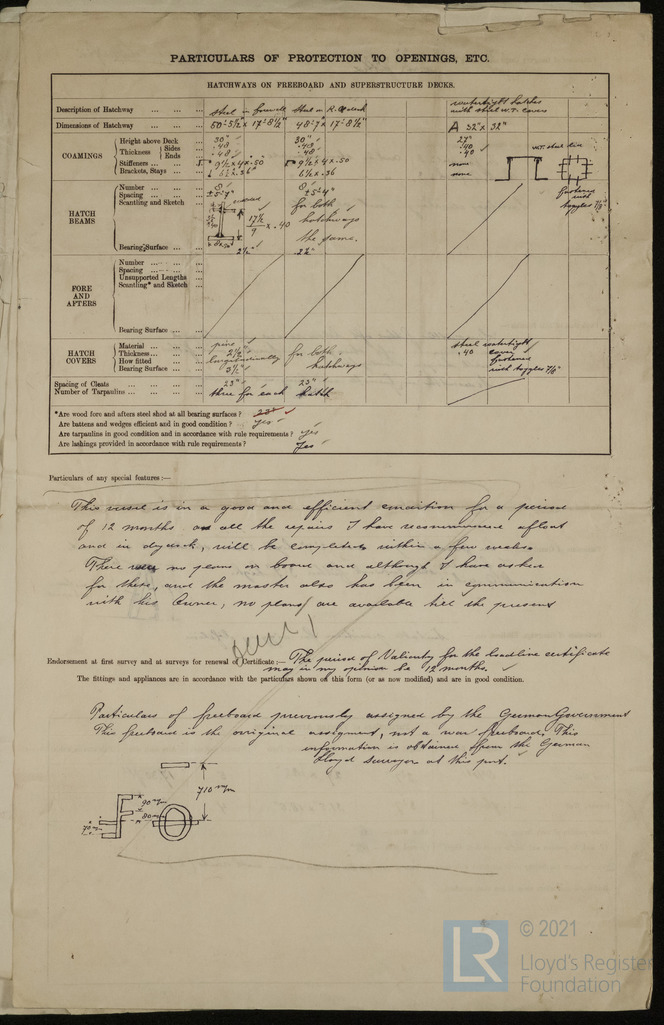 PARTICULARS OF PROTECTION TO OPENINGS, ETC.
HATCHWAYS ON FREEBOARD AND SUPERSTRUCTURE DECKS.
Description of Hatchway ... ... ... steel in steel in R. Qr deck watertight hatches with steel W.T. covers
Dimensions of Hatchway ... ... ... 50'-5½" x 17'-8½" 48'-7" x 17'-8½" A 32" x 32"
COAMINGS
Height above Deck ... 30" 30" 27"
Thickness Sides ... .48 .48 .40
Ends ... .48 .48 .40
Stiffeners ... ... ... 9½ x 4 x .50 9½ x 4 x .50 none
Brackets, Stays ... ... 6½ x .36 6½ x .36 none
W.T. steel
fastened with toggles 7/8"
HATCH BEAMS
Number ... ... ... 8 8
Spacing ... ... ... ±5'-4" ±5'-4"
Scantling and Sketch 17½ / 9 x .40 for both hatchways the same.
Bearing Surface ... 2½" 2½"
FORE AND AFTERS
Number ... ... ...
Spacing ... ... ...
Unsupported Lengths
Scantling* and Sketch
Bearing Surface ...
HATCH COVERS
Material ... ... ... pine steel watertight cover
Thickness ... ... ... 2½" for both hatchways .40
How fitted ... longitudinally fastened with toggles 7/8"
Bearing Surface ... 3½"
Spacing of Cleats ... ... ... 23" 23"
Number of Tarpaulins ... ... three for each hatch
*Are wood fore and afters steel shod at all bearing surfaces?
Are battens and wedges efficient and in good condition? yes
Are tarpaulins in good condition and in accordance with rule requirements? yes
Are lashings provided in accordance with rule requirements? Yes
Particulars of any special features:—
This vessel is in a good and efficient condition for a period
of 12 months as all the repairs I have recommended afloat
and in drydock, will be completed within a few weeks.
There were no plans on board and although I have asked
for these, and the master also has been in communication
with his Owner, no plans are available till the present
Endorsement at first survey and at surveys for renewal of Certificate:— The period of Validity for the loadline certificate
may in my opinion be 12 months.
The fittings and appliances are in accordance with the particulars shown on this form (or as now modified) and are in good condition.
Particulars of freeboard previously assigned by the German Government
This freeboard is the original assignment, not a war freeboard. This
information is obtained from the German
Lloyd surveyor at this port.
710 m/m
90 m/m
80 m/m
70 m/m
F
LR
© 2021
Lloyd's Register
Foundation